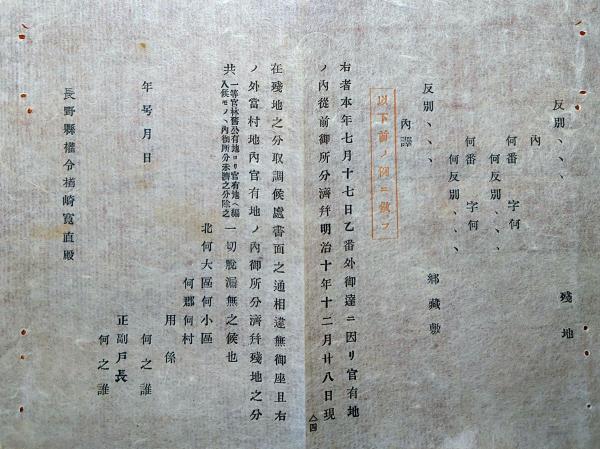 反別、、、 殘地
內
何番 字何
何反別、、、
何番 字何
何反別、、、
反別、、、 鄉藏敷
內譯
以下前ノ例ニ倣フ
右者本年七月十七日乙番外御達ニ因リ官有地
ノ內從前御所分濟幷明治十年十二月廿八日現
△四
在殘地之分取調候處書面之通相違無御座且右
ノ外當村地內官有地ノ內御所分濟幷殘地之分
共一等官林舊公有地ヨリ官有地ヘ編入候モノヽ內御所分未濟之分除之一切脫漏無之候也
北何大區何小區
何郡何村
用係
何之誰
正副戶長
何之誰
年号月日
長野縣權令楢崎寬直殿